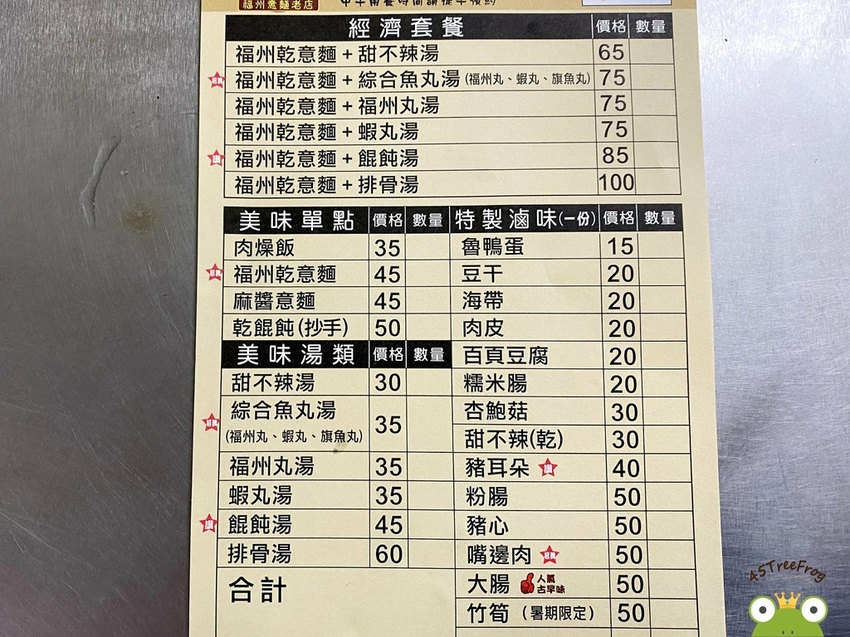 福州意麵老店
經濟套餐 價格 數量
福州乾意麵+甜不辣湯 65
福州乾意麵+綜合魚丸湯(福州丸、蝦丸、旗魚丸) 75
福州乾意麵+福州丸湯 75
福州乾意麵+蝦丸湯 75
福州乾意麵+餛飩湯 85
福州乾意麵+排骨湯 100
美味單點 價格 數量
肉燥飯 35
福州乾意麵 45
麻醬意麵 45
乾餛飩(抄手) 50
美味湯類 價格 數量
甜不辣湯 30
綜合魚丸湯 35
(福州丸、蝦丸、旗魚丸)
福州丸湯 35
蝦丸湯 35
餛飩湯 45
排骨湯 60
合計
特製滷味(一份) 價格 數量
魯鴨蛋 15
豆干 20
海帶 20
肉皮 20
百頁豆腐 20
糯米腸 20
杏鮑菇 30
甜不辣(乾) 30
豬耳朵 40
粉腸 50
豬心 50
嘴邊肉 50
大腸 人氣古早味 50
竹筍(暑期限定) 50
45TreeFrog